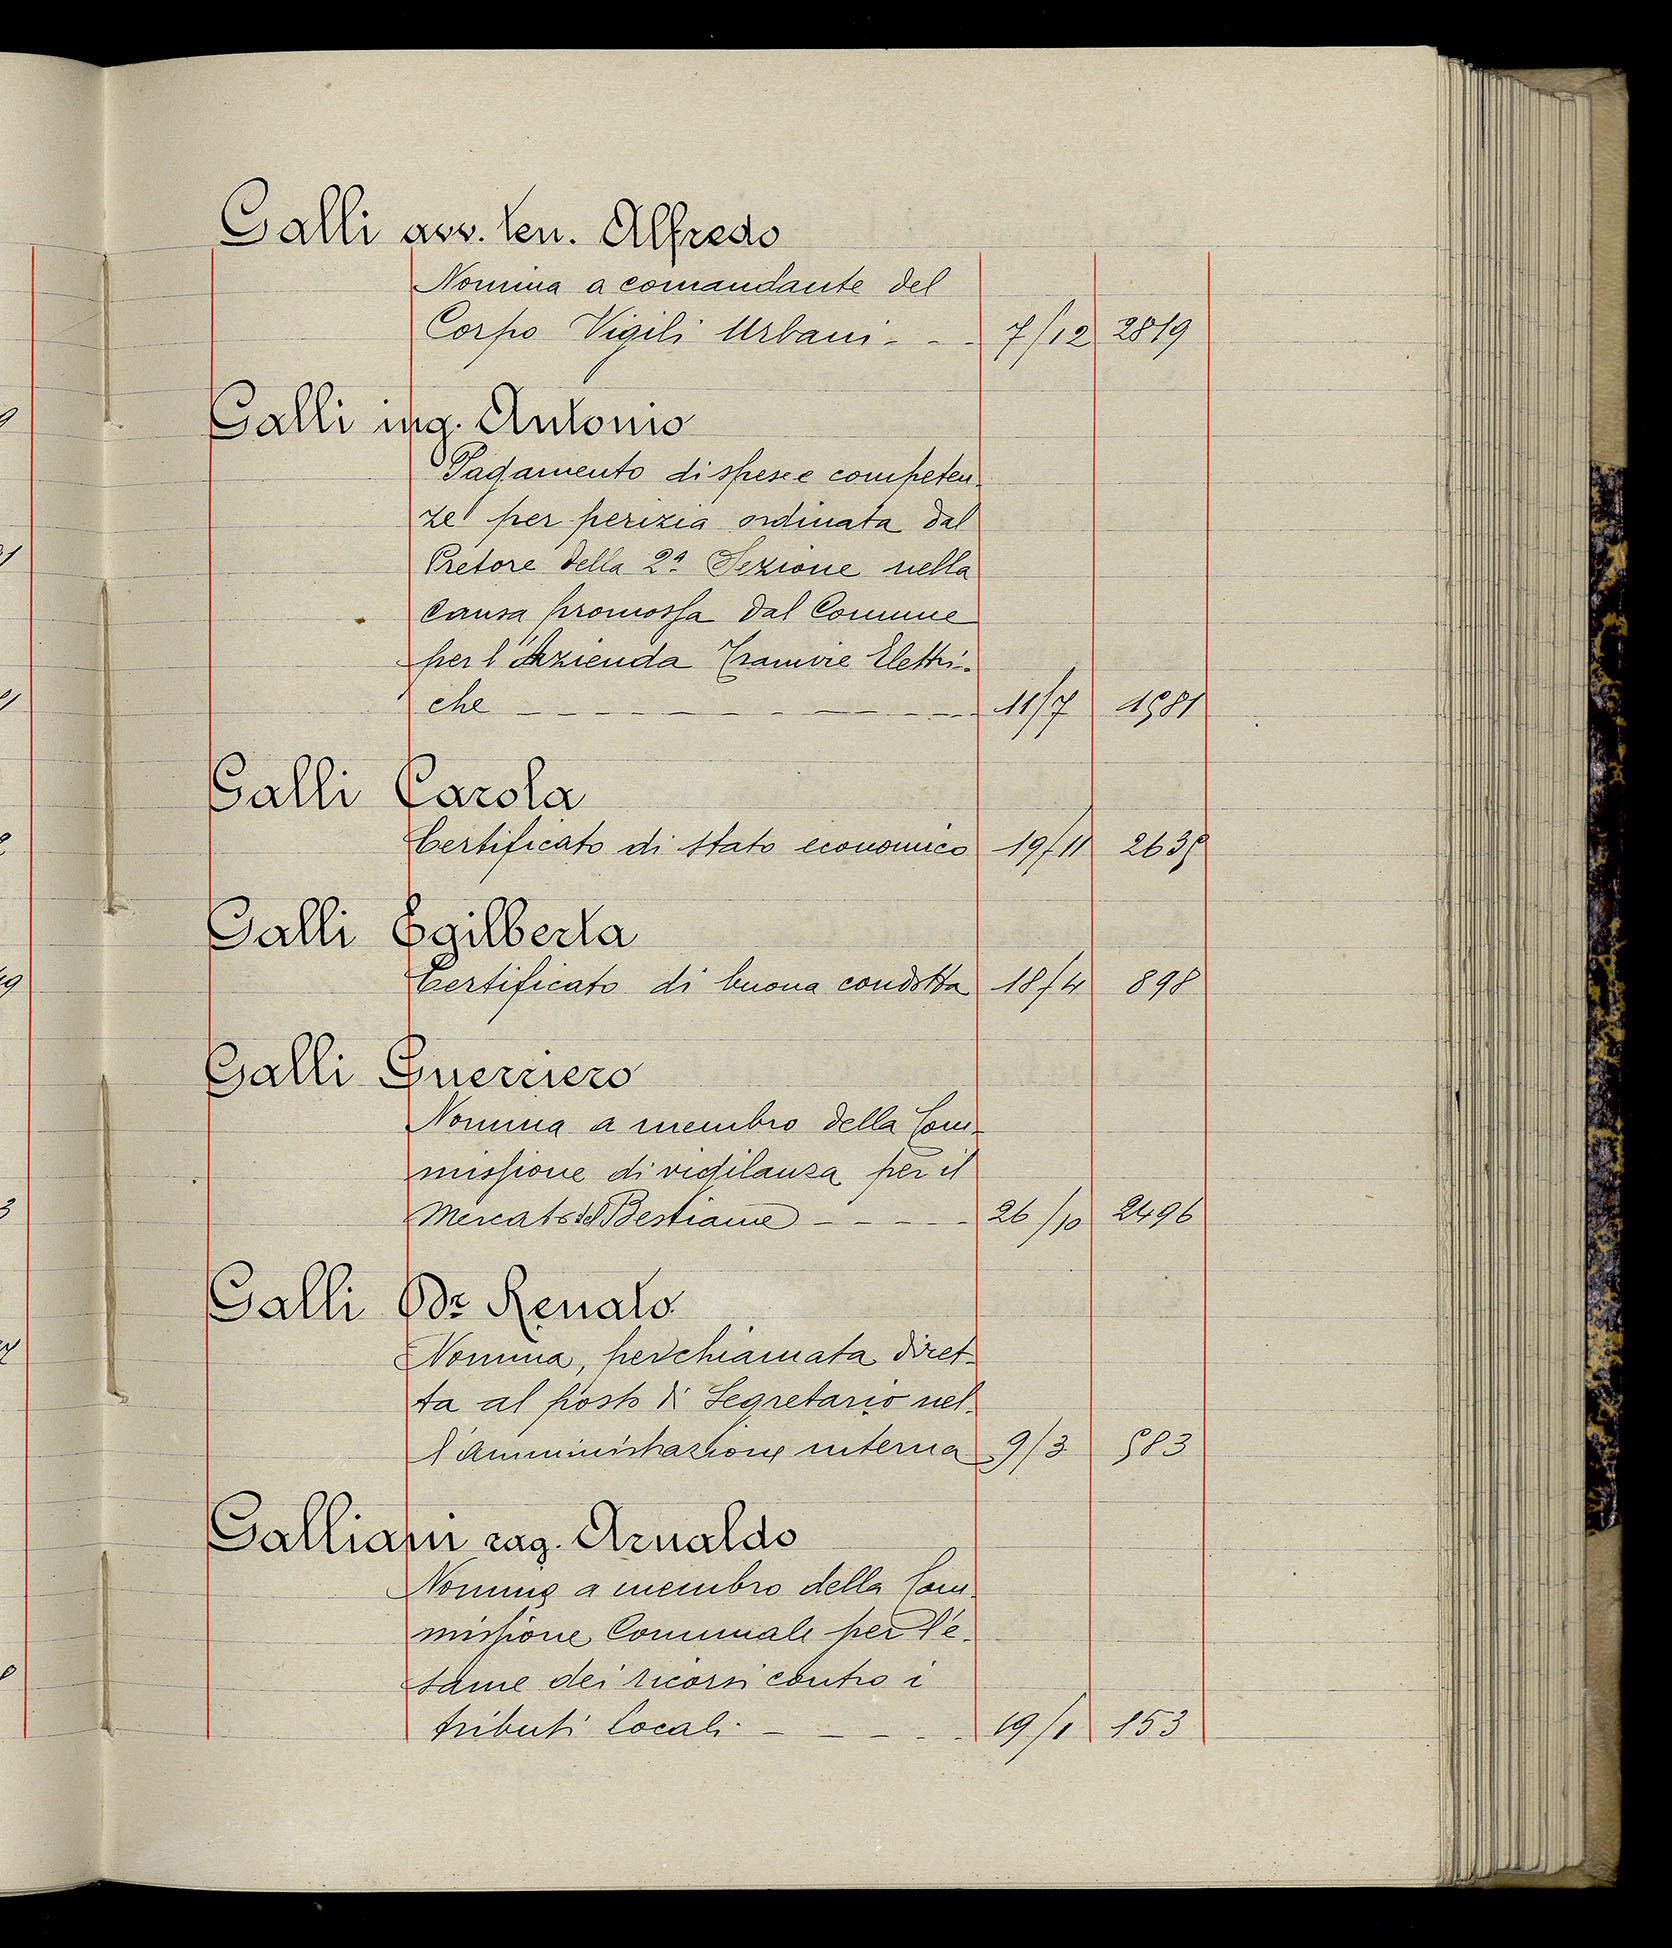 Galli avv. ten. Alfredo
Nomina a comandante del
Corpo Vigili Urbani - - - 7/12 2819
Galli ing. Antonio
Pagamento di spese e competen-
ze per perizia ordinata dal
Pretore della 2ª Sezione nella
causa promossa dal Comune
per l'Azienda Tranvie Elettri-
che - - - - - - - - 11/7 1581
Galli Carola
Certificato di stato economico 19/11 2635
Galli Egilberta
Certificato di buona condotta 18/4 898
Galli Guerriero
Nomina a membro della Com-
missione di vigilanza per il
Mercato del Bestiame - - - - - 26/10 2496
Galli Dr Renato
Nomina, per chiamata diret-
ta al posto di Segretario nel-
l'amministrazione interna 9/3 583
Galliani rag. Arnaldo
Nomina a membro della Com-
missione Comunale per l'e-
same dei ricorsi contro i
tributi locali - - - - - 19/1 153